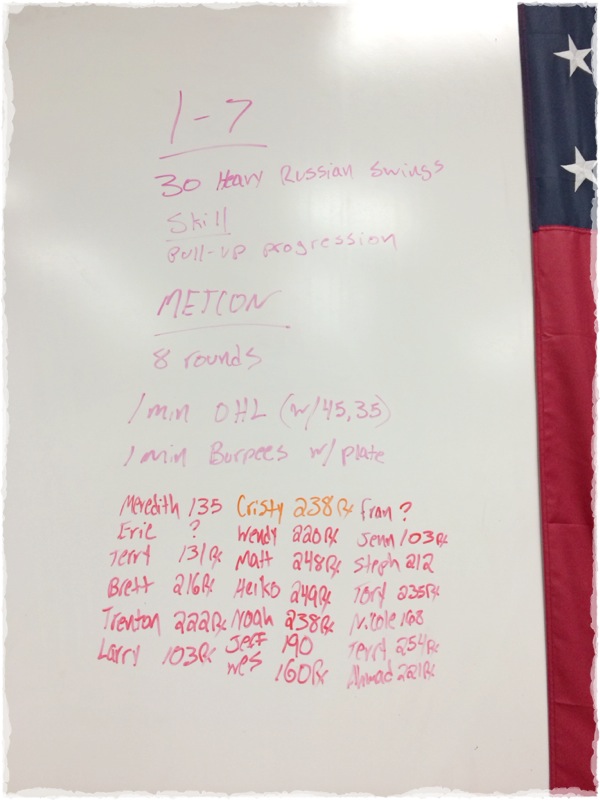 1-7
30 Heavy Russian Swings
Skill
Pull-up progression
METCON
8 rounds
1 min OHL (w/45,35)
1 min Burpees w/ plate
Meredith 135 Cristy 238Rx Fran ?
Eric ? Wendy 220Rx Jenn 103Rx
Terry 131Rx Matt 248Rx Steph 212
Brett 216Rx Heiko 249Rx Tory 235Rx
Trenton 222Rx Noah 238Rx Nicole 168
Larry 103Rx Jeff 190 Terry 254Rx
Wes 160Rx Ahmad 221Rx